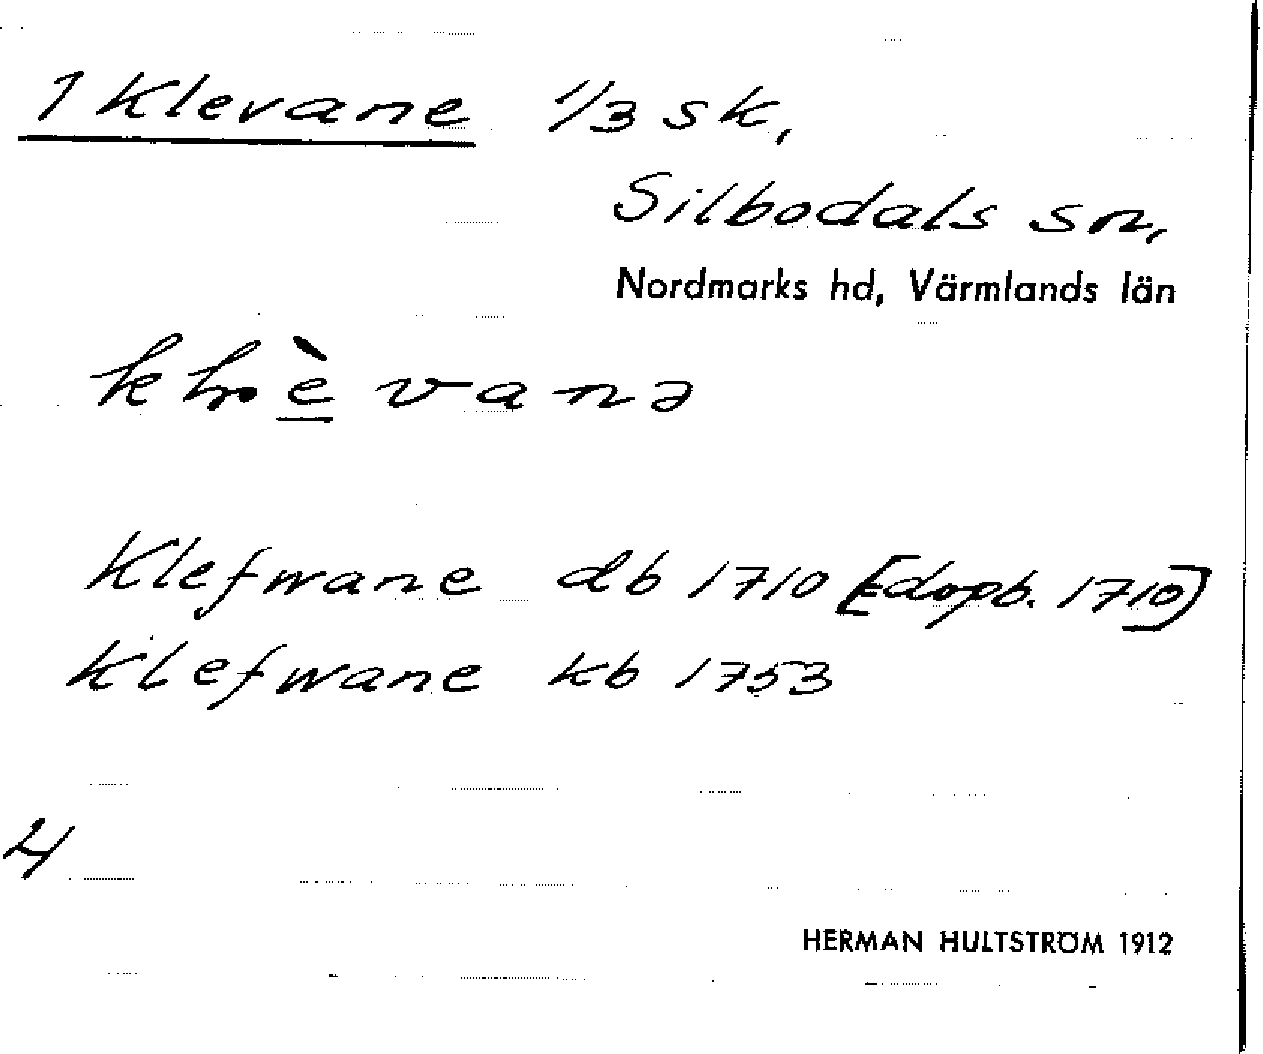 1 Klevane 1/3 sk,
Silbodals sn,
Nordmarks hd, Värmlands län
Klefwane db 1710 [dopb. 1710]
Klefwane kb 1753
4
HERMAN HULTSTRÖM 1912